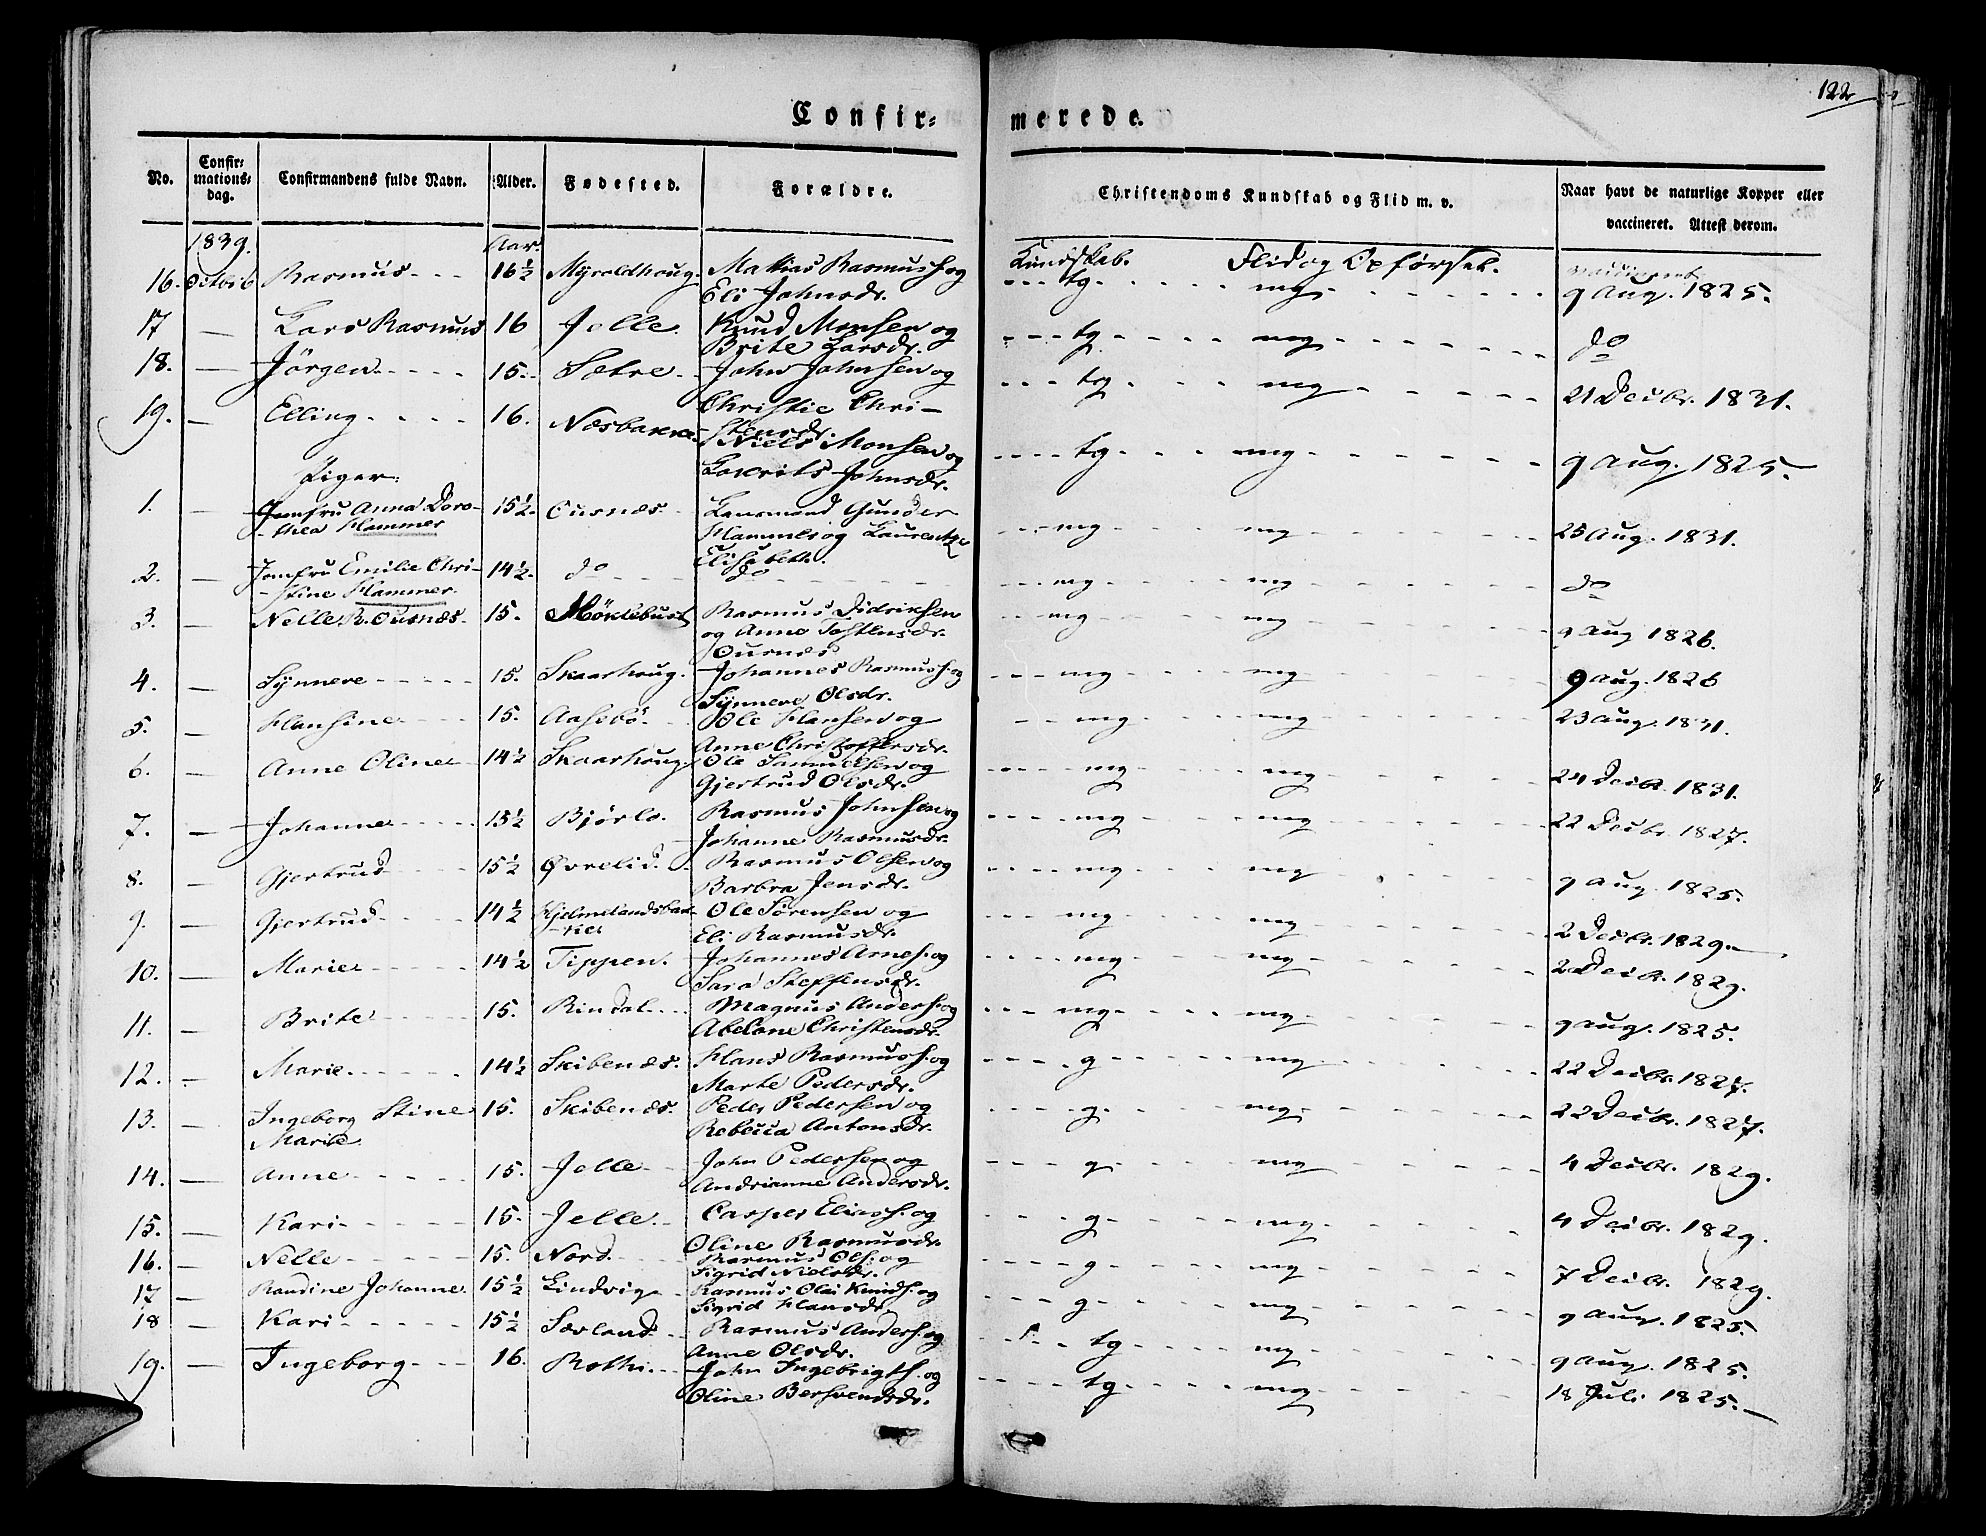 122
Confir= merede.
No. Confir=mations=dag. Confirmandens fulde Navn. Alder. Fødested. Forældre. Christendoms Kundskab og Flid m. v. Naar havt de naturlige Kopper eller vaccineret. Attest derom.
1839. Aar. Kundskab. Flid og Opførsel.
16. Octbr 6 Rasmus 16½ Myroldhoug. Mathias Rasmuss. og Eli Johnsdr. tg. mg. 9 Aug. 1825.
17 — Lars Rasmus 16 Jelle. Knud Monsen og Brite Larsdr. tg. mg. do
18. — Jörgen 15. Sætre John Johnsen og Christie Christensdr. tg. mg. 21 Decbr. 1831.
19. — Elling 16. Næsbakken Niels Monsen og Johnsdr. tg. mg. 9 Aug. 1825.
Piger.
1. — Jomfru Anna Dorothea Hammer 15½. Ousnæs Lensmand Gunder Hammer og Laurentze Elisabeth. mg. mg. 25 Aug. 1831.
2. — Jomfru Emilie Christine Hammer. 14½. do do mg mg do
3. — Nelle R. Ousnæs 15. Möklebust Rasmus Didriksen og Anne Tostensdr. Ousnæs mg mg 9 Aug 1826.
4. — Synneve 15. Skaarhoug. Johannes Rasmuss. og Synneve Olsdr. mg mg 9 Aug. 1826
5. — Hansine 15. Aasebö. Ole Hansen og Anne Christoffersdr. mg mg 23 Aug. 1831.
6. — Anne Oline 14½ Skaarhoug Ole Samuelsen og Gjertrud Olsdr. mg mg 24 Decbr. 1831.
7. — Johanne 15½ Bjørlo. Rasmus Johnsen og Johanne Rasmusdr. mg mg 22 Decbr. 1827.
8. — Gjertrud 15½ Øvrelid. Rasmus Olsen og Barbra Jensdr. mg mg 9 Aug. 1825.
9. — Gjertrud 14½ Hjelmelandsbakker Ole Sørensen og Eli Rasmusdr. mg mg 2 Decbr. 1829.
10. — Marie 14½ Tippen. Johannes Arnes. og Sara Steffensdr. mg mg 2 Decbr. 1829.
11. — Brite 15. Rindal Magnus Anders. og Abelone Christensdr. mg mg 9 Aug. 1825.
12. — Marie 14½ Skibenæs. Hans Rasmuss. og Marte Pedersdr. g mg 22 Decbr. 1827.
13. — Ingeborg Stine Marie 15. Skibenæs. Peder Pedersen og Rebecca Antonsdr. g. mg 22 Decbr. 1827.
14. — Anne 15. Jelle John Pedersen og Andrianne Andersdr. g. mg 4 Decbr. 1829.
15. — Kari 15. Jelle. Casper Eliass. og Oline Rasmusdr. g. mg. 4 Decbr. 1829.
16. — Nelle 15. Nord. Rasmus Ols. og Sigrid Nielsdr. g mg 7 Decbr. 1829.
17 — Randine Johanne 15½ Lindvig Rasmus Olai Knuds. og Sigrid Hansdr. g mg 9 Aug. 1825.
18 — Kari 15½ Sørland. Rasmus Anders. og Anne Olsdr. tg. mg 9 Aug. 1825.
19. — Ingeborg 16. Rothi John Ingebrigts. og Oline Bersvendsdr. tg mg 18 Juli 1825.